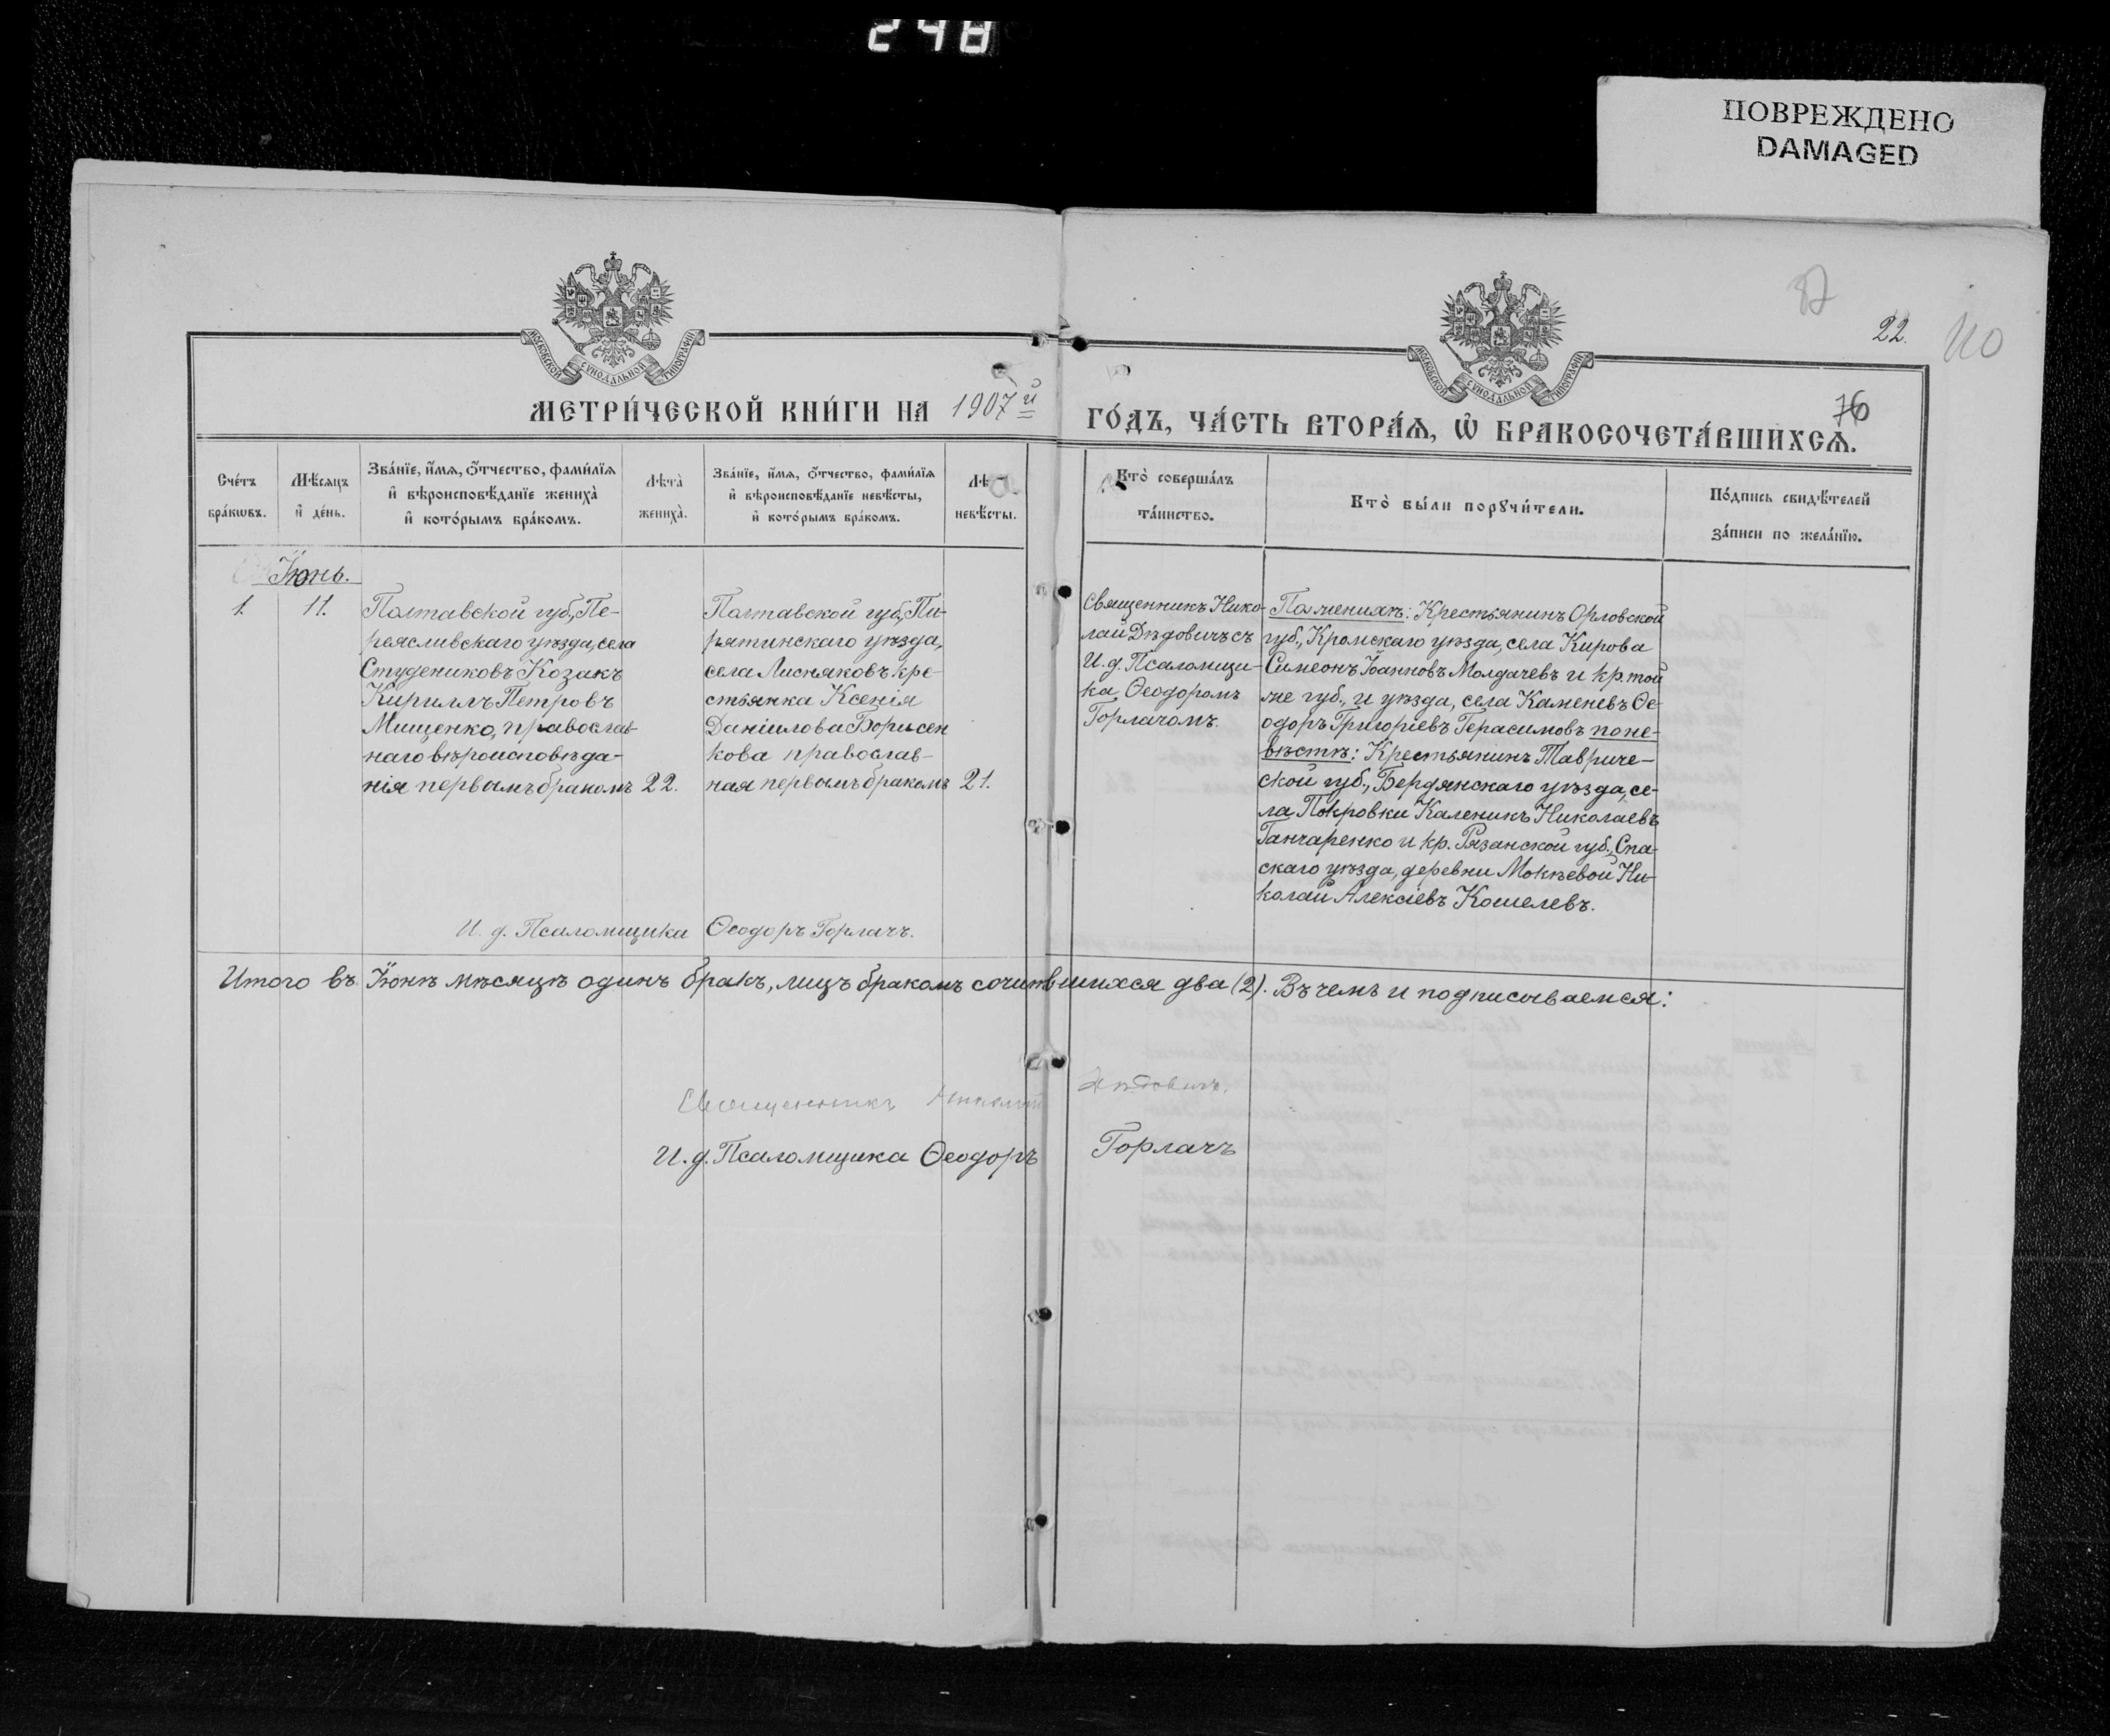 248
ПОВРЕЖДЕНО
DAMAGED
87
22.
110
76
МОСКОВСКОЙ СѴНОДАЛЬНОЙ ТИПОГРАФІИ
МОСКОВСКОЙ СѴНОДАЛЬНОЙ ТИПОГРАФІИ
МЕТРИ́ЧЕСКОЙ КНИ́ГИ НА 1907й ГО́ДЪ, ЧА́СТЬ ВТОРА́Ѧ, Ѡ҆ БРАКОСОЧЕТА́ВШИХСѦ.
Сче́тъ
бра́кѡвъ.
Мѣ́сяцъ
и҆ де́нь.
Зва́нїе, и҆́мѧ, ѻ҆́тчество, фами́лїѧ
и҆ вѣроисповѣ́данїе жениха̀
и҆ кото́рымъ бра́комъ.
Лѣта̀
жениха̀.
Зва́нїе, и҆́мѧ, ѻ҆́тчество, фами́лїѧ
и҆ вѣроисповѣ́данїе невѣ́сты,
и҆ кото́рымъ бра́комъ.
Лѣ
невѣ́сты.
Кто̀ соверша́лъ
та́инство.
Кто̀ бы́ли порꙋчи́тели.
По́дпись свидѣ́телей
за́писи по жела́нїю.
Іюнь.
1.
11.
Полтавской губ., Пе-
реяславскаго уѣзда, села
Студениковъ Козакъ
Кириллъ Петровъ
Мищенко, православ-
наго вѣроисповѣда-
нія первымъ бракомъ
22.
Полтавской губ., Пи-
рятинскаго уѣзда,
села Лисняковъ кре-
стьянка Ксенія
Даніилова Борисен
кова православ-
ная первымъ бракомъ
21.
Священникъ Нико-
лай Дѣдовичъ съ
И. д. Псаломщи-
ка Ѳеодоромъ
Горлачомъ.
По женихѣ: Крестьянинъ Орловской
губ., Кромскаго уѣзда, села Кирова
Симеонъ Іоанновъ Молдачевъ и кр. той
же губ., и уѣзда, села Каменевъ Ѳе-
одоръ Григоріевъ Герасимовъ по не-
вѣстѣ: Крестьянинъ Тавриче-
ской губ., Бердянскаго уѣзда, се-
ла Покровки Каленикъ Николаевъ
Ганчаренко и кр. Рязанской губ., Спа-
скаго уѣзда, деревни Мокѣевой Ни-
колай Алексіевъ Кошелевъ.
И. д. Псаломщика Ѳеодоръ Горлачъ.
Итого въ Іюнѣ мѣсяцѣ одинъ бракъ, лицъ бракомъ сочитвшихся два (2). Въ чемъ и подписываемся:
Священникъ Николай Дѣдовичъ.
И. д. Псаломщика Ѳеодоръ Горлачъ